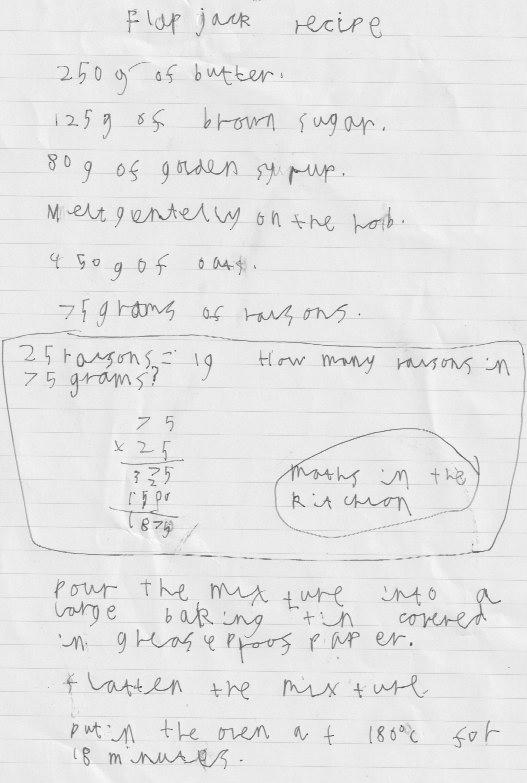 Flap jack recipe
250 g of butter.
125 g of brown sugar.
80 g of golden syrup.
Melt gentelly on the hob.
450 g of oats.
75 grams of raisons.
25 raisons = 1g How many raisons in
75 grams?
75
x 25
375
2
1500
1875
maths in the
kitchion
pour the mixture into a
large baking tin covered
in greaseproof paper.
flatten the mixture
put in the oven at 180°c for
18 minutes.